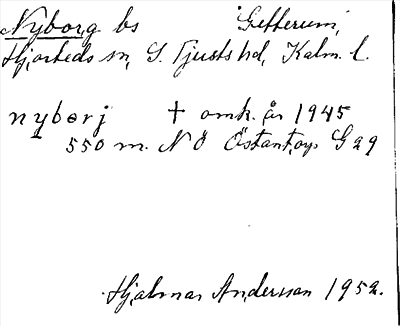 Nyborg bs Getterum,
Hjorteds sn, S. Tjusts hd, Kalm. l.
nyberj † omk. år 1945
550 m. NÖ Östantorp G 29
Hjalmar Andersson 1952.